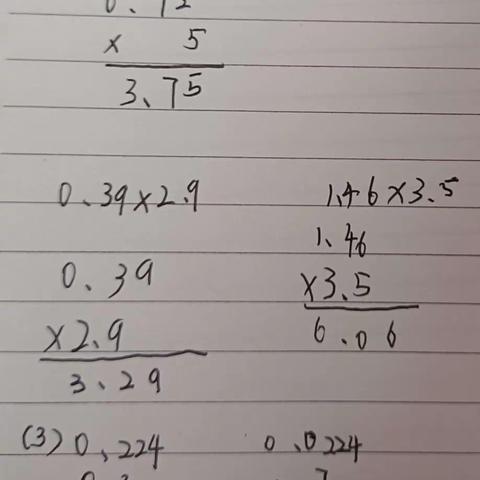 × 5
3.75
0.39×2.9
1.46×3.5
0.39
1.46
×2.9
×3.5
3.29
6.06
(3) 0.224
0.0224